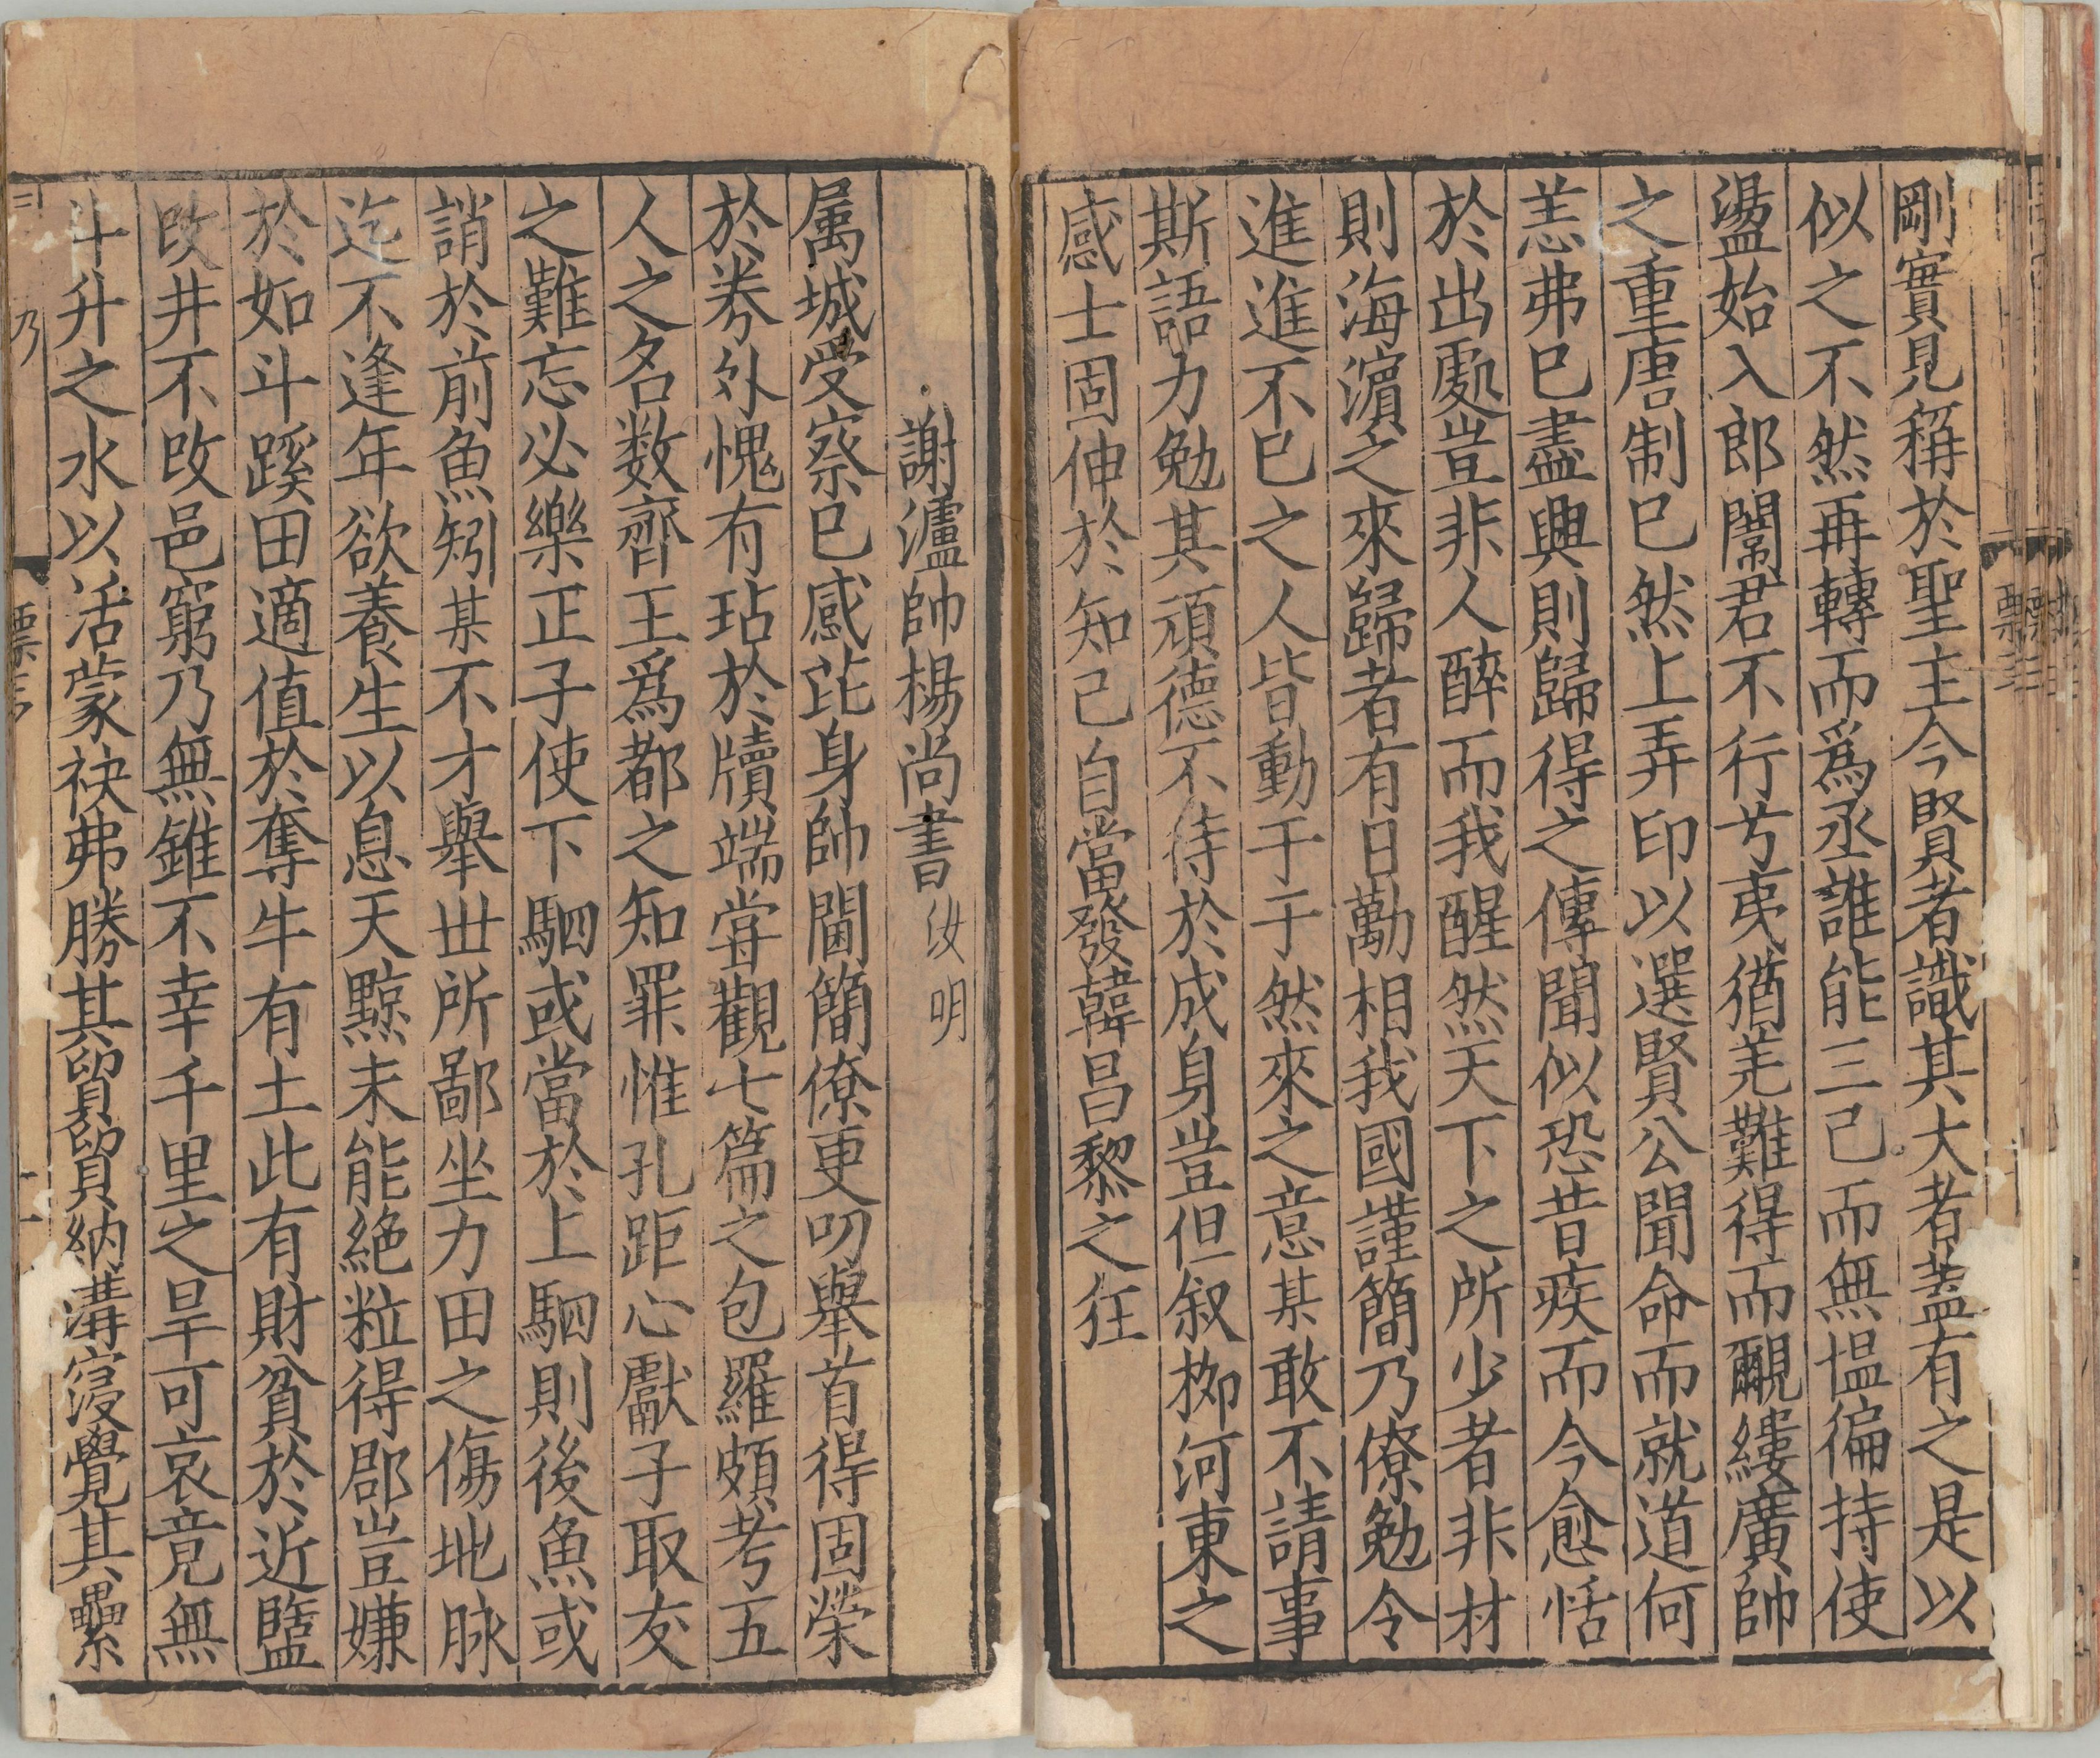 剛實見稱於聖主今賢者識其大者蓋有之是以
似之不然再轉而爲丞誰能三已而無慍徧持使
盪始入郎闈君不行兮夷猶羌難得而覼縷廣帥
之重唐制已然上弄印以選賢公聞命而就道何
恙弗已盡興則歸得之傳聞似恐昔疾而今愈恬
於出處豈非人醉而我醒然天下之所少者非材
則海濵之來歸者有日勱相我國謹簡乃僚勉令
進進不已之人皆動于于然來之意某敢不請事
斯語力勉其頑德不待於成身豈但叙栁河東之
感士固伸於知己自當發韓昌黎之狂
謝瀘帥楊尚書汝明
属城受察已感芘身帥閫簡僚更叨舉首得固榮
於券外愧有玷於牘端甞觀七篇之包羅頗考五
人之名数齊王爲都之知罪惟孔距心獻子取友
之難忘必樂正子使下駟或當於上駟則後魚或
誚於前魚矧某不才舉丗所鄙坐力田之傷地脉
迄不逢年欲養生以息天黥未能絶粒得郡豈嫌
於如斗蹊田適值於奪牛有土此有財貧於近盬
改井不改邑窮乃無錐不幸千里之旱可哀竟無
斗升之水以活蒙袂弗勝其貿貿納溝寖覺其纍